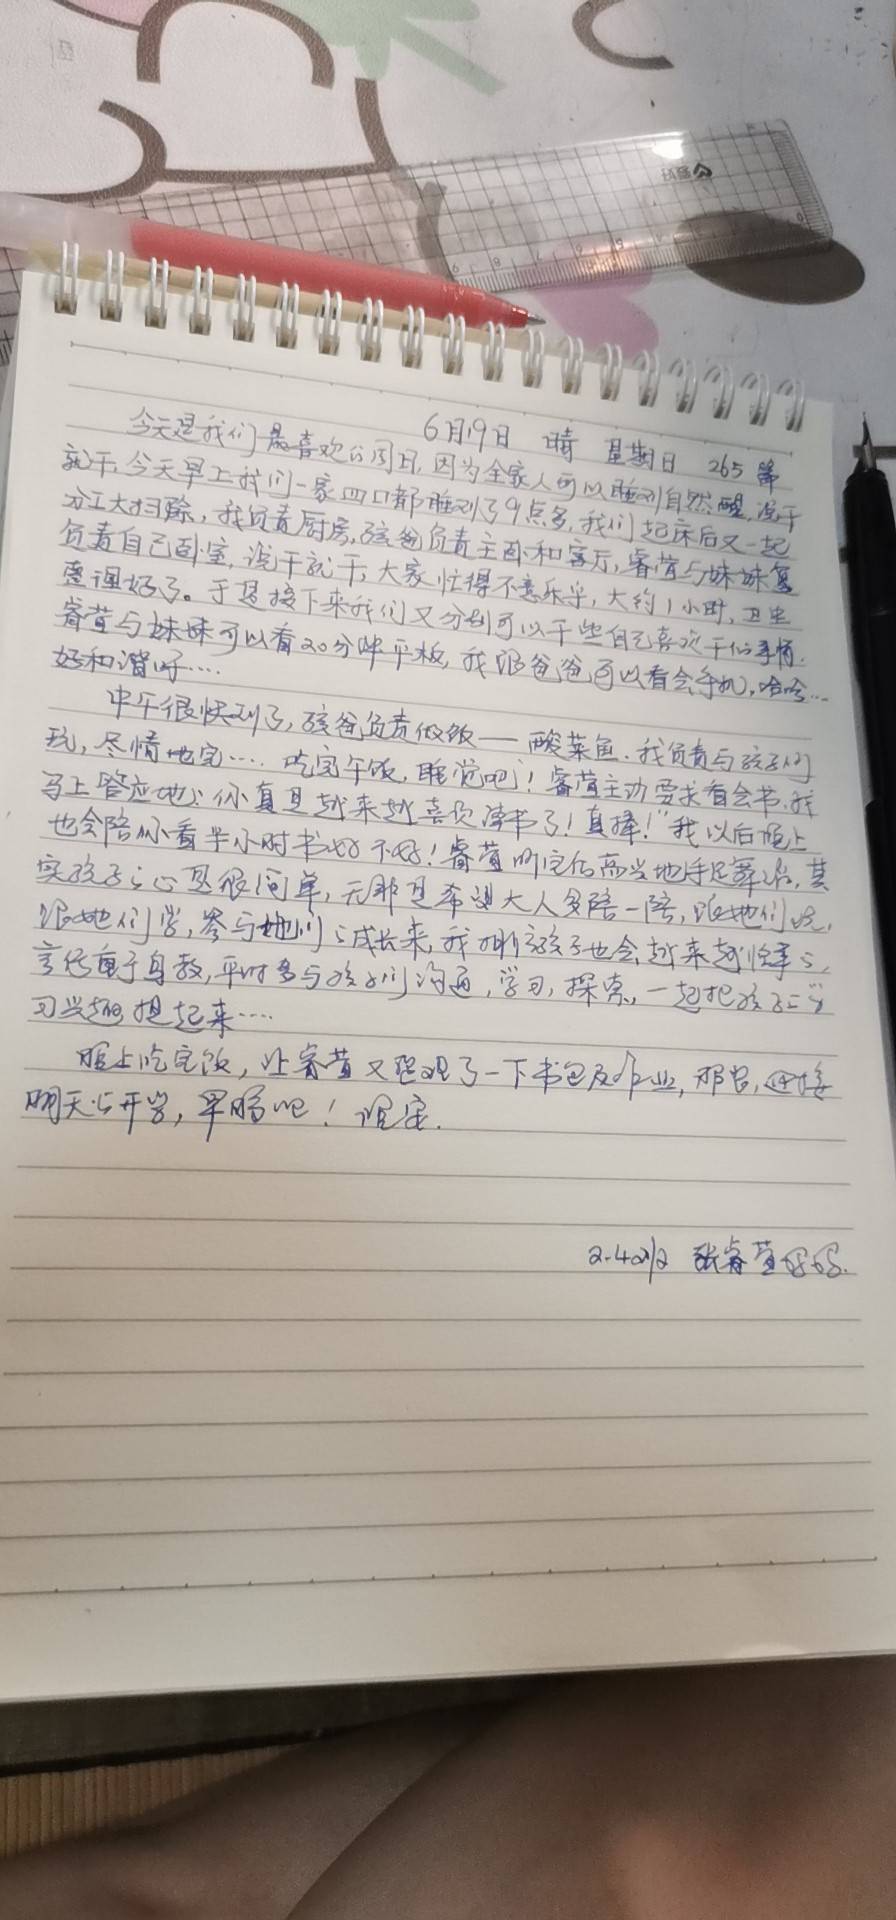 6月19日 晴 星期日 265篇
今天是我们最喜欢的周日,因为全家人可以睡到自然醒,说干
就干,今天早上我们一家四口都睡到了9点多,我们起床后又一起
分工大扫除,我负责厨房,孩爸负责主卧和客厅,睿萱与妹妹
负责自己卧室,说干就干,大家忙得不亦乐乎,大约1小时,卫生
整理好了。于是接下来我们又分别可以干些自己喜欢干的事情.
睿萱与妹妹可以看20分钟平板,我跟爸爸可以看会手机,哈哈…
好和谐呀……
中午很快到了,孩爸负责做饭——酸菜鱼.我负责与孩子们
玩,尽情地玩…. 吃完午饭,睡觉吧!睿萱主动要求看会书.我
马上答应她:你真是越来越喜欢读书了!真棒!"我以后晚上
也会陪你看半小时书好不好!睿萱听完后高兴地手足舞蹈,其
实孩子的心思很简单,无非是希望大人多陪一陪,跟她们玩,
跟她们学,参与她们的成长来,我孩子也会越来越的,
言传身教,平时多与孩子们沟通,学习,探索,一起把孩子的学
习兴趣提起来….
晚上吃完饭,让睿萱又整理了一下书包及作业,那,迎接
明天的开学,早睡吧!晚安.
2.4 张睿萱妈妈.